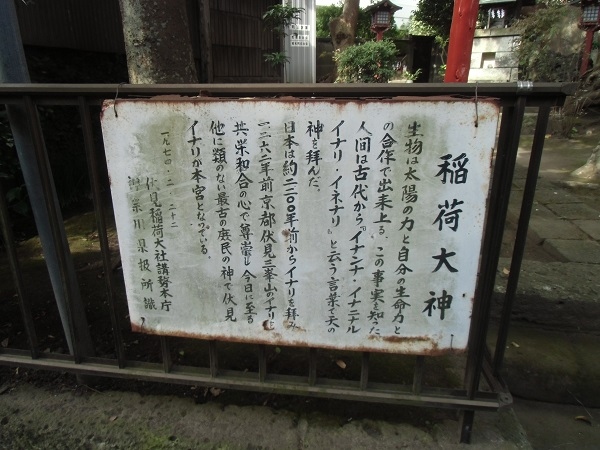 稲荷大神
生物は太陽の力と自分の生命力と
の合作で出来上る。この事実を知った
人間は古代から『イナンナ・イナニナル
イナリ・イネナリ』と云う言葉で天の
神を拝んだ。
日本は約二二〇〇年前からイナリを拝み
一二六二年前京都伏見三峯山のイナリに
共栄和合の心で尊崇し今日に至る
他に類のない最古の庶民の神で伏見
イナリが本宮となっている。
一九七四・二・二十二
伏見稲荷大社講務本庁
神奈川県扱所議